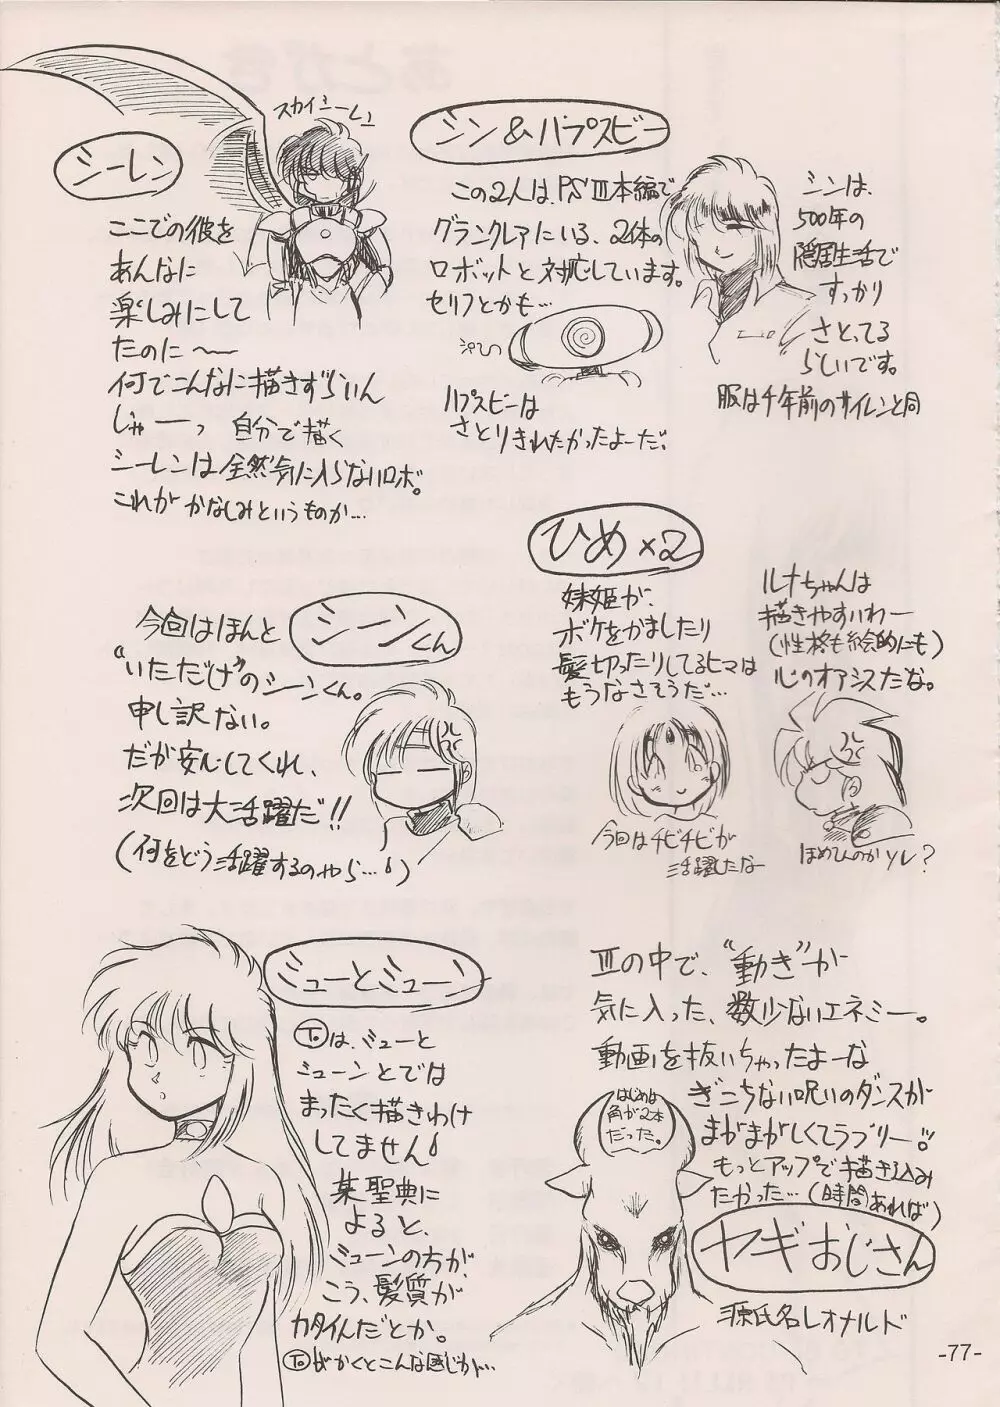 シーレン
スカイミーレ2
ここでの彼を
あんなに
楽しみにして
たのに〜
何でこんなに描きずらいん
じゃーっ 自分で描く
シーレンは全然気に入らないロボ。
これが かなしみというものか…
シン&ハプスビー
この2人は、PSⅢ本編で
グランクレアにいる、2体の
ロボットと対応しています。
セリフとかも…
ハプスビーは
さとりきれたかったよーだ。
シンは、
500年の
隠居生活で
すっかり
さとってる
らしいです。
服は千年前のサイレンと同
ひめ×2
妹姫が、
ボケをかましたり
髪切ったりしてるヒマは
もうなさそうだ…
今回はチビチビが
活躍したなー
ルナちゃんは
描きやすいわー
(性格も絵的にも)
心のオアシスだな。
ほめてんのか ソレ?
今回はほんと シーンくん
"いただけ"のシーンくん。
申し訳ない。
だが安心してくれ、
次回は大活躍だ!!
(何をどう活躍するのやら…)
ミューとミューン
Toは、ミューと
ミューンとでは
まったく描きわけ
してません!
某聖典に
よると、
ミューンの方が、
こう、髪質が
カタイんだとか。
Toがかくとこんな感じか…
Ⅲの中で、"動き"が
気に入った、数少ないエネミー。
動画を抜いちゃったよーな
ぎこちない呪いのダンスが
まがまがしくてラブリー!!
もっとアップで描き込み
たかった…(時間あれば)
はじめは
角が2本
だった。
ヤギおじさん
源氏名レオナルド
-77-